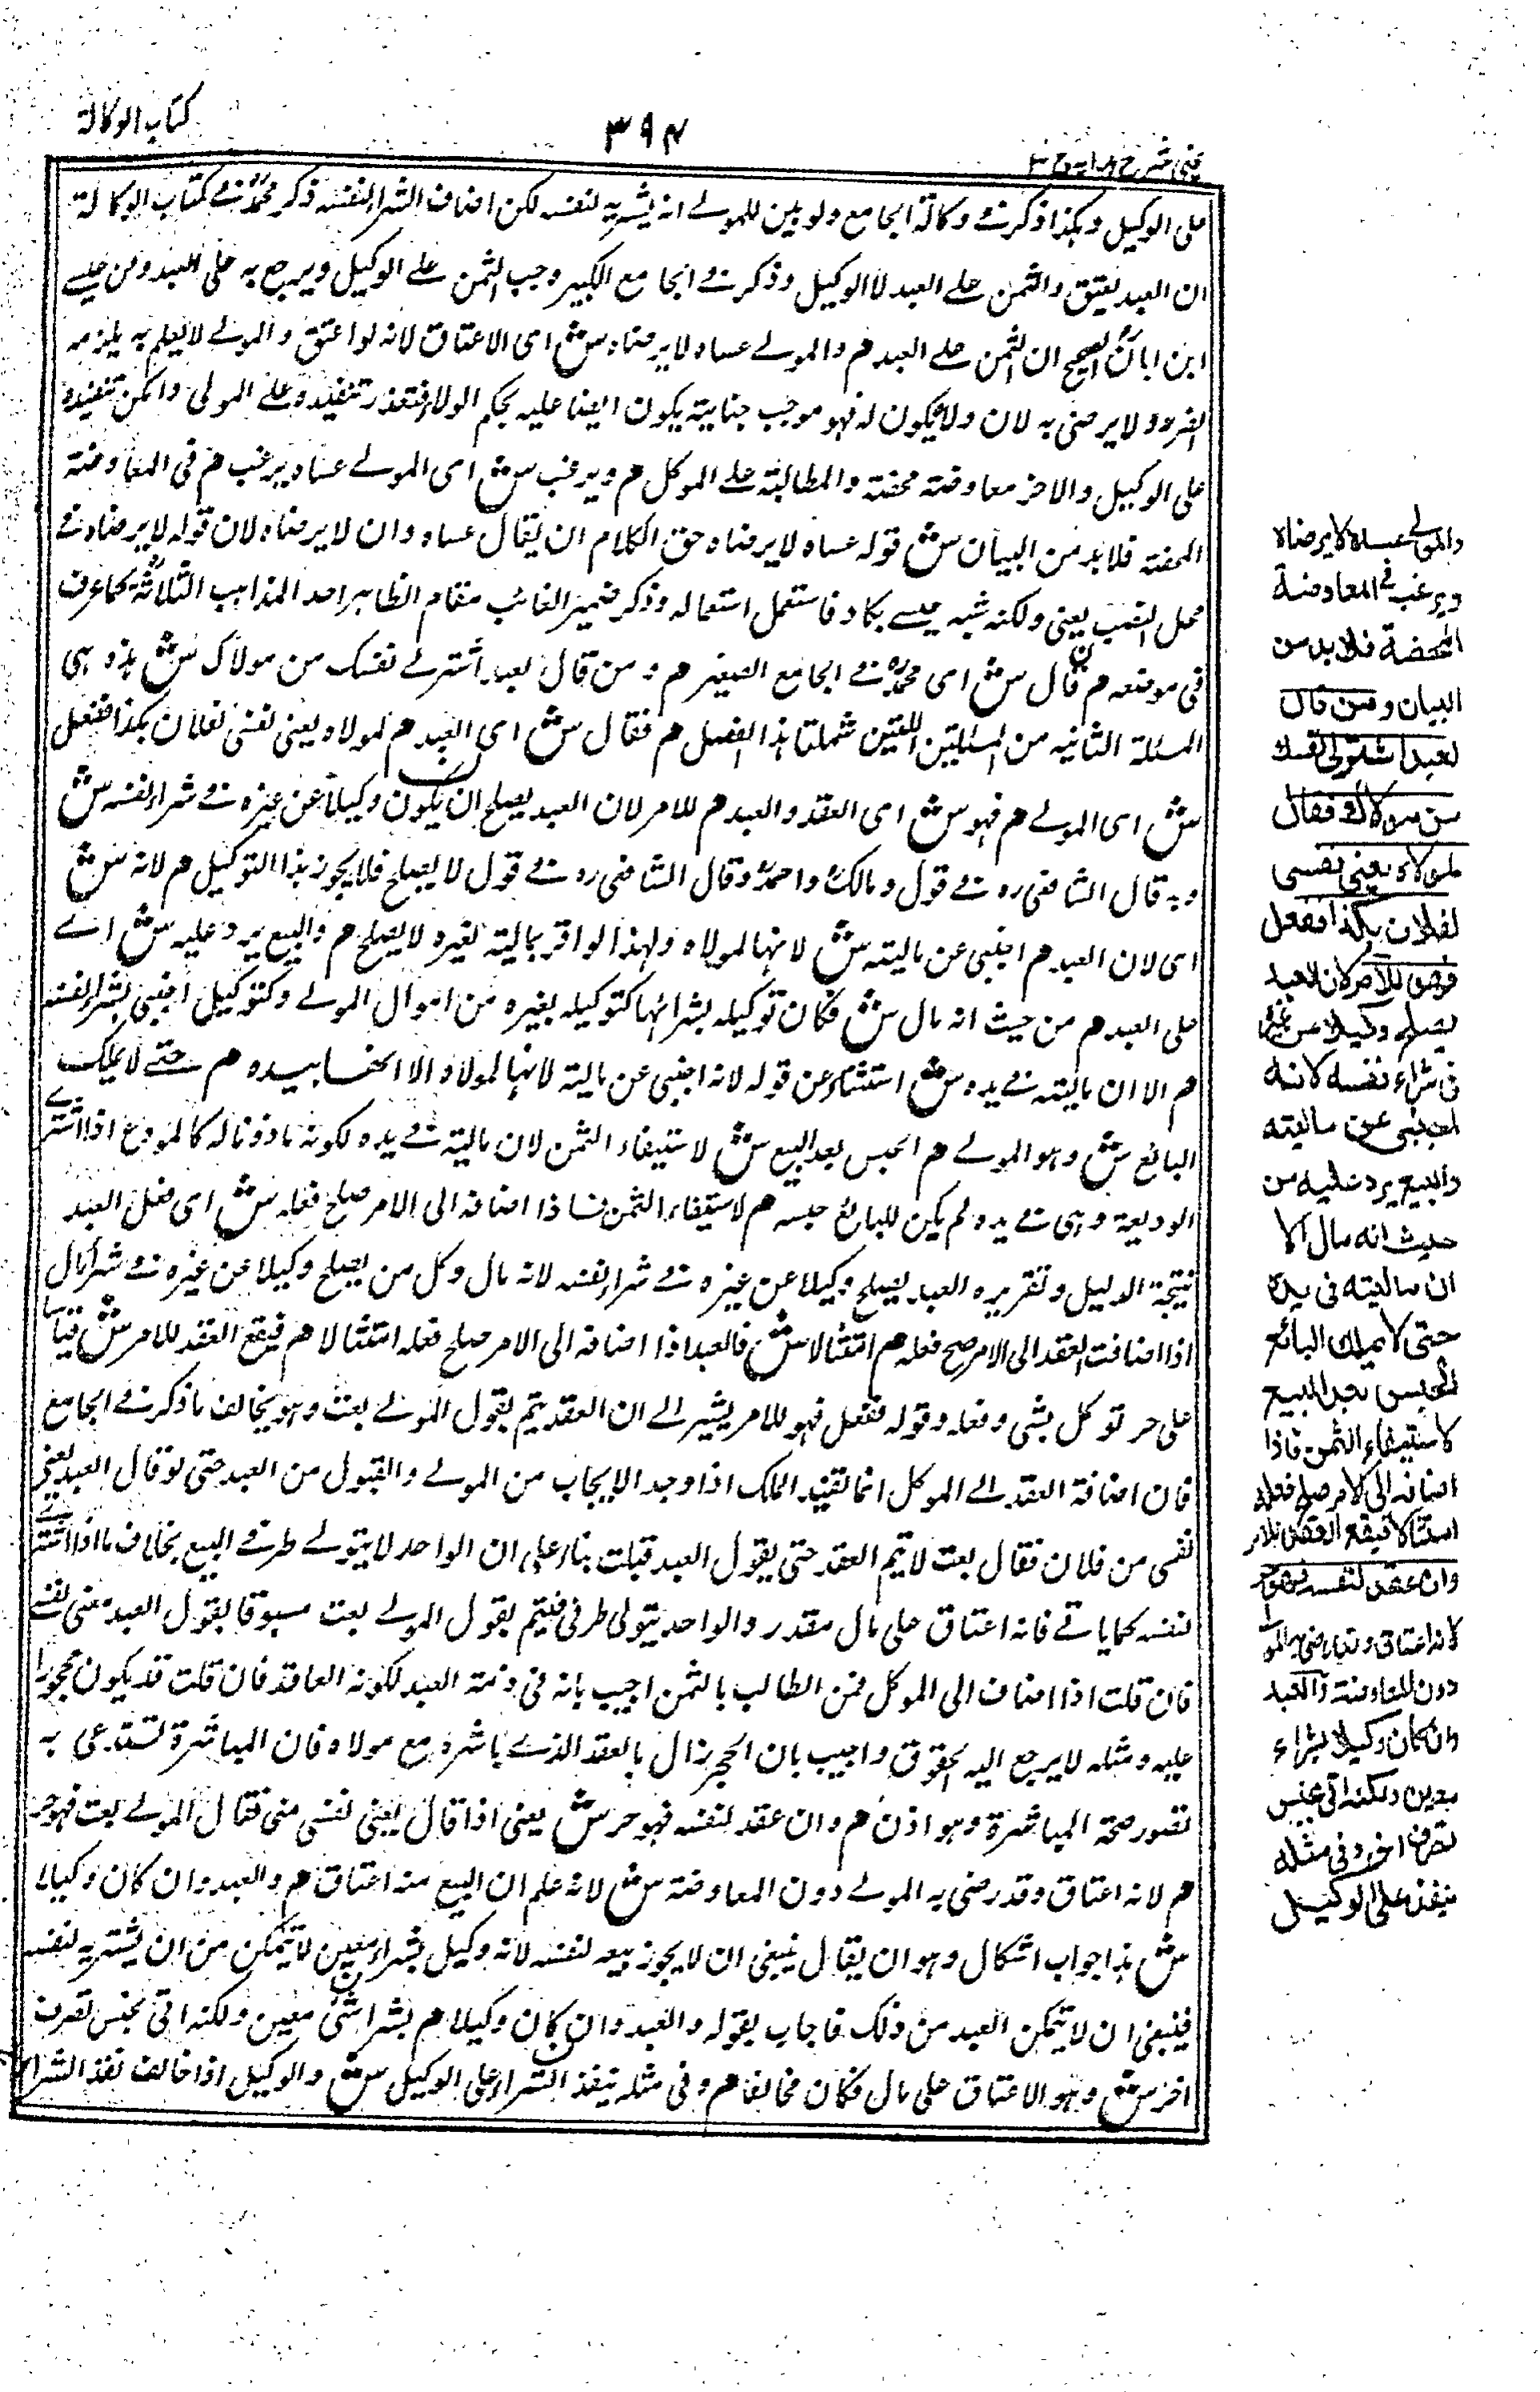 كتاب الوكالة
٣٩٤
عینی شرح ہدایہ ج ٣
على الوكيل وہكذا ذكر فے وكالة الجامع ولو بين للمولے انہ يشتريہ لنفسہ لكن اضاف الشراء لنفسہ ذكر محمدؒ فے كتاب الوكالة
ان العبد يعتق والثمن علے العبد لا الوكيل وذكر فے الجامع الكبير وجب الثمن علے الوكيل ويرجع بہ على العبد وعن عيسے
ابن ابانؒ الصحيح ان الثمن علے العبد م والمولے عساہ لا يرضاہ ش اى الاعتاق لانہ لو اعتق والمولے لا يعلم بہ يلزمہ
الضرر ولا يرضى بہ لان ولاءہ يكون لہ فهو موجب جنايتہ يكون ايضا عليہ بحكم الولاء فتعذر تنفيذہ علے المولى وامكن تنفيذہ
على الوكيل والاخر معاوضتہ محضتہ والمطالبتہ علے الموكل م ويرغب ش اى المولے عساہ يرغب م فى المعاوضتہ
المحضتہ فلا بد من البيان ش قولہ عساہ لا يرضاہ حق الكلام ان يقال عساہ وان لا يرضاہ لان قولہ لا يرضاہ فے
محل النصب يعنى ولكنہ شبہ عيسے بكاد فاستعمل استعمالہ وذكر ضمير الغائب مقام الظاہر احد المذاہب الثلاثة كما عرف
فى موضعہ م قال ش اى محمدؒ فے الجامع الصغير م ومن قال لعبد اشترلے نفسك من مولاك ش ہذہ ہى
المسئلة الثانيہ من المسئلتين اللتين شملتا ہذا الفصل م فقال ش اى العبد م لمولاہ بعنى نفسى لفلان بكذا ففعل
ش اى المولے م فهو ش اى العقد والعبد م للامر لان العبد يصلح ان يكون وكيلا عن غيرہ فے شراء نفسہ ش
وبہ قال الشافعى رہ فے قول ومالكؒ واحمدؒ وقال الشافعى رہ فے قول لا يصلح فلا يجوز ہذا التوكيل م لانہ ش
اى لان العبد م اجنبى عن ماليتہ ش لانہا لمولاہ ولہذا لو اقر بماليتہ لغيرہ لا يصلح م والبيع يرد عليہ ش اے
على العبد م من حيث انہ مال ش فكان توكيلہ بشرائہا كتوكيلہ بغيرہ من اموال المولے وكتوكيل اجنبى بشراء نفسہ
م الا ان ماليتہ فے يدہ ش استثناء عن قولہ لانہ اجنبى عن ماليتہ لانہا لمولاہ الا انہا بيدہ م حتے لا يملك
البائع ش وہو المولے م الحبس بعد البيع ش لاستيفاء الثمن لان ماليتہ فے يدہ لكونہ ماذونا لہ كالمودع اذا اشترے
الوديعة وہى فے يدہ لم يكن للبائع حبسہ م لاستيفاء الثمن فاذا اضافہ الى الامر صلح فعلہ ش اى فعل العبد
نتيجة الدليل وتقريرہ العبد يصلح وكيلا عن غيرہ فے شراء نفسہ لانہ مال وكل من يصلح وكيلا عن غيرہ فے شراء مال
اذا اضاف العقد الى الامر صح فعلہ م امتثالا ش فالعبد اذا اضافہ الى الامر صلح فعلہ امتثالا م فيقع العقد للامر ش قياسا
على حر توكل بشئ وفعلہ وقولہ ففعل فهو للامر يشير الے ان العقد يتم بقول المولے بعت وہو يخالف ما ذكر فے الجامع
فان اضافة العقد الے الموكل انما تفيد الملك اذا وجد الايجاب من المولے والقبول من العبد حتى لو قال العبد بعنى
نفسى من فلان فقال بعت لا يتم العقد حتى يقول العبد قبلت بناء على ان الواحد لا يتولے طرفے البيع بخلاف ما اذا اشترے
لنفسہ كما ياتے فانہ اعتاق على مال مقدر والواحد يتولى طرفى فيتم بقول المولے بعت مسبوقا بقول العبد بعنى نفسے
فان قلت اذا اضاف الى الموكل فمن الطالب بالثمن اجيب بانہ فى ذمتہ العبد لكونہ العاقد فان قلت قد يكون محجورا
عليہ ومثلہ لا يرجع اليہ الحقوق واجيب بان الحجر زال بالعقد الذے باشرہ مع مولاہ فان المباشرة تستدعى بہ
تصور صحة المباشرة وہو اذن م وان عقد لنفسہ فهو حر ش يعنى اذا قال بعنى نفسى منى فقال المولے بعت فهو حر
م لانہ اعتاق وقد رضى بہ المولے دون المعاوضتہ ش لانہ علم ان البيع منہ اعتاق م والعبد وان كان وكيلا
ش ہذا جواب اشكال وہو ان يقال ينبغى ان لا يجوز بيعہ لنفسہ لانہ وكيل بشراء معين لا يتمكن من ان يشتريہ لنفسہ
فينبغى ان لا يتمكن العبد من ذلك فاجاب بقولہ والعبد وان كان وكيلا م بشراء شئ معين ولكنہ اتى بجنس تصرف
اخر ش وہو الاعتاق على مال فكان مخالفا م وفى مثلہ ينفذ الشراء على الوكيل ش والوكيل اذا خالف نفذ الشراء
والمولى عساه لا يرضاه
ويرغب فى المعاوضة
المحضة فلا بد من
البيان ومن قال
لعبد اشتر لى نفسك
من مولاك فقال
لمولاه بعنى نفسى
لفلان بكذا ففعل
فهو للآمر لان العبد
يصلح وكيلا عن غيره
فى شراء نفسه لانه
اجنبى عن ماليته
والبيع يرد عليه من
حيث انه مال الا
ان ماليته فى يده
حتى لا يملك البائع
الحبس بعد البيع
لاستيفاء الثمن فاذا
اضافه الى الامر صلح فعله
امتثالا فيقع العقد للامر
وان عقد لنفسه فهو حر
لانه اعتاق وقد رضى به المولى
دون المعاوضة والعبد
وان كان وكيلا بشراء
معين ولكنه اتى بجنس
تصرف اخر وفى مثله
ينفذ على الوكيل